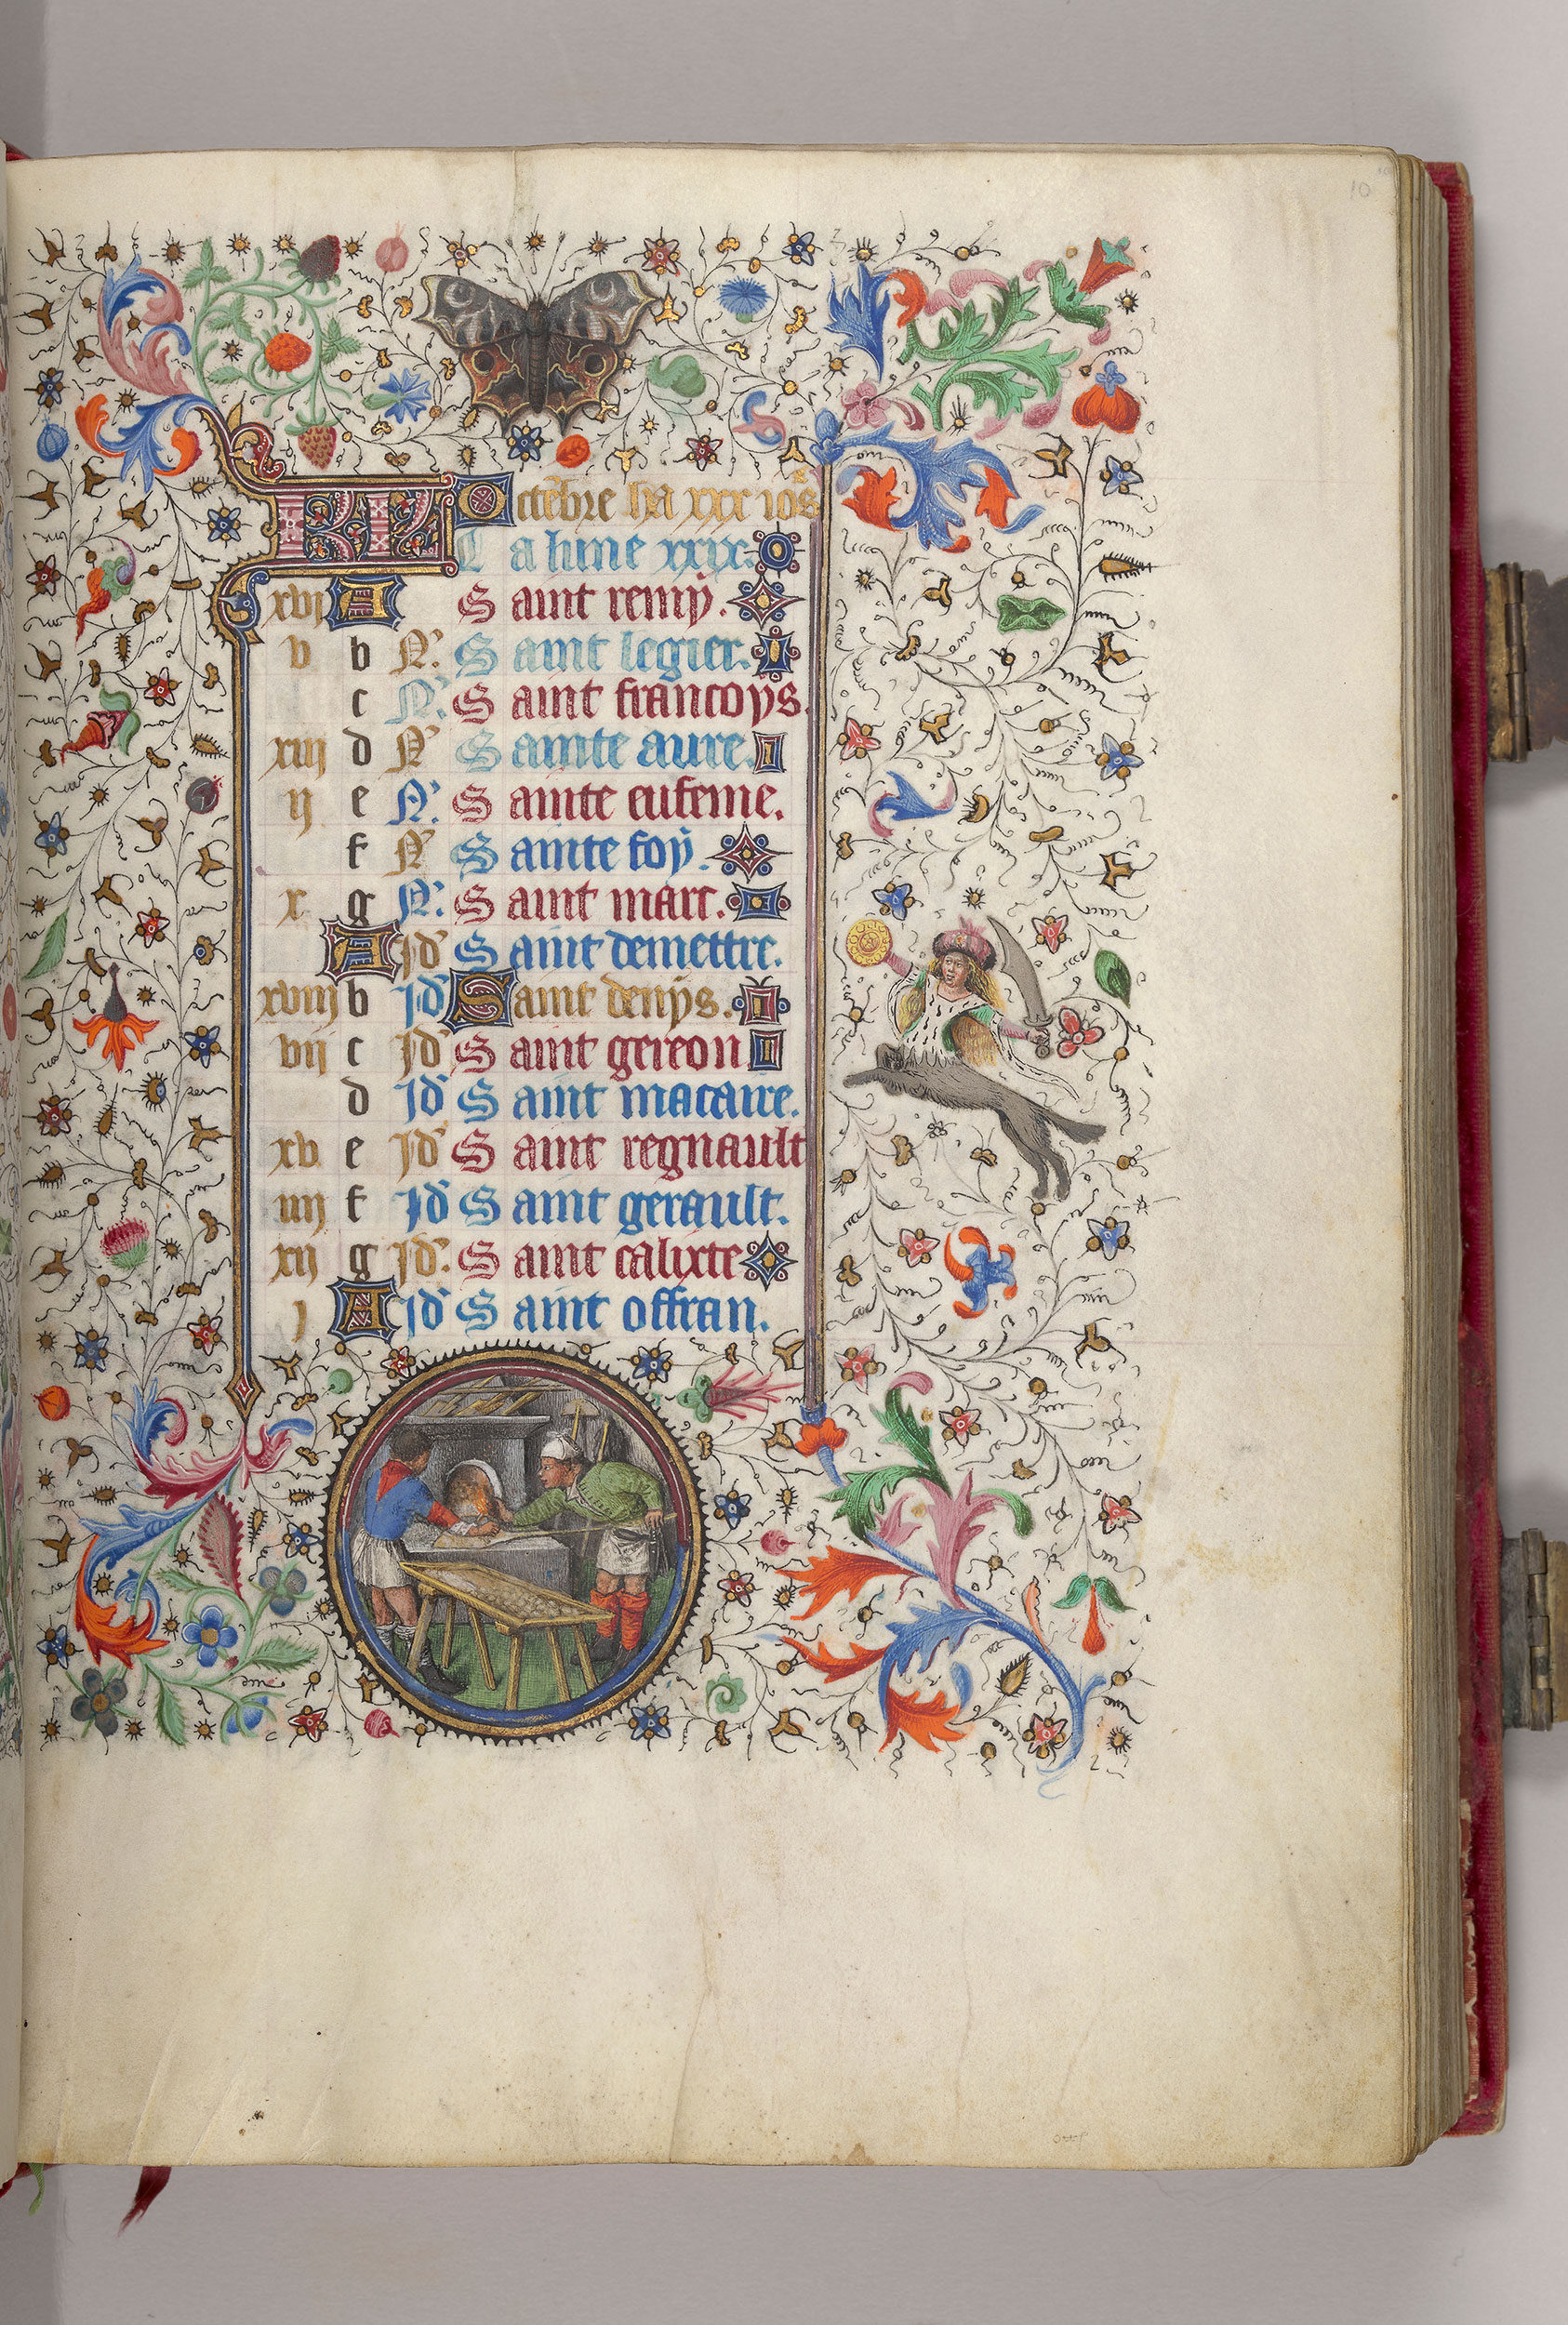 10
KL Octēbre ha xxx io's
La lune xxix.
xvi A Saint remy.
v b N. Saint legier.
c N. Saint francoys.
xiii d N Sainte aure.
ii e N. Sainte eufeme.
f N Sainte foy.
x g N. Saint marc.
A Id Saint demettre.
xviii b Id Saint denys.
vii c Id Saint gereon
d Id Saint macaire.
xv e Id Saint regnault
iiii f Id Saint gerault.
xii g Id. Saint calixte
i A Id Saint offran.